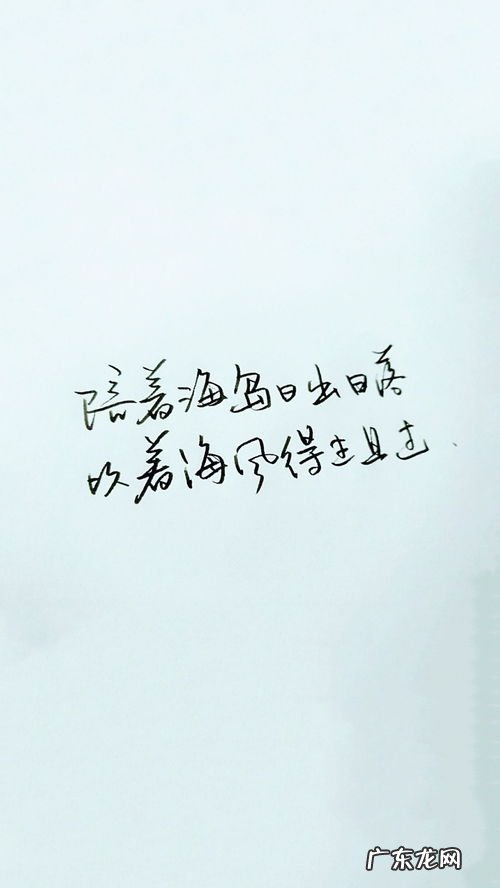 陪着海岛日出日落
吹着海风得过且过.
广东龙网